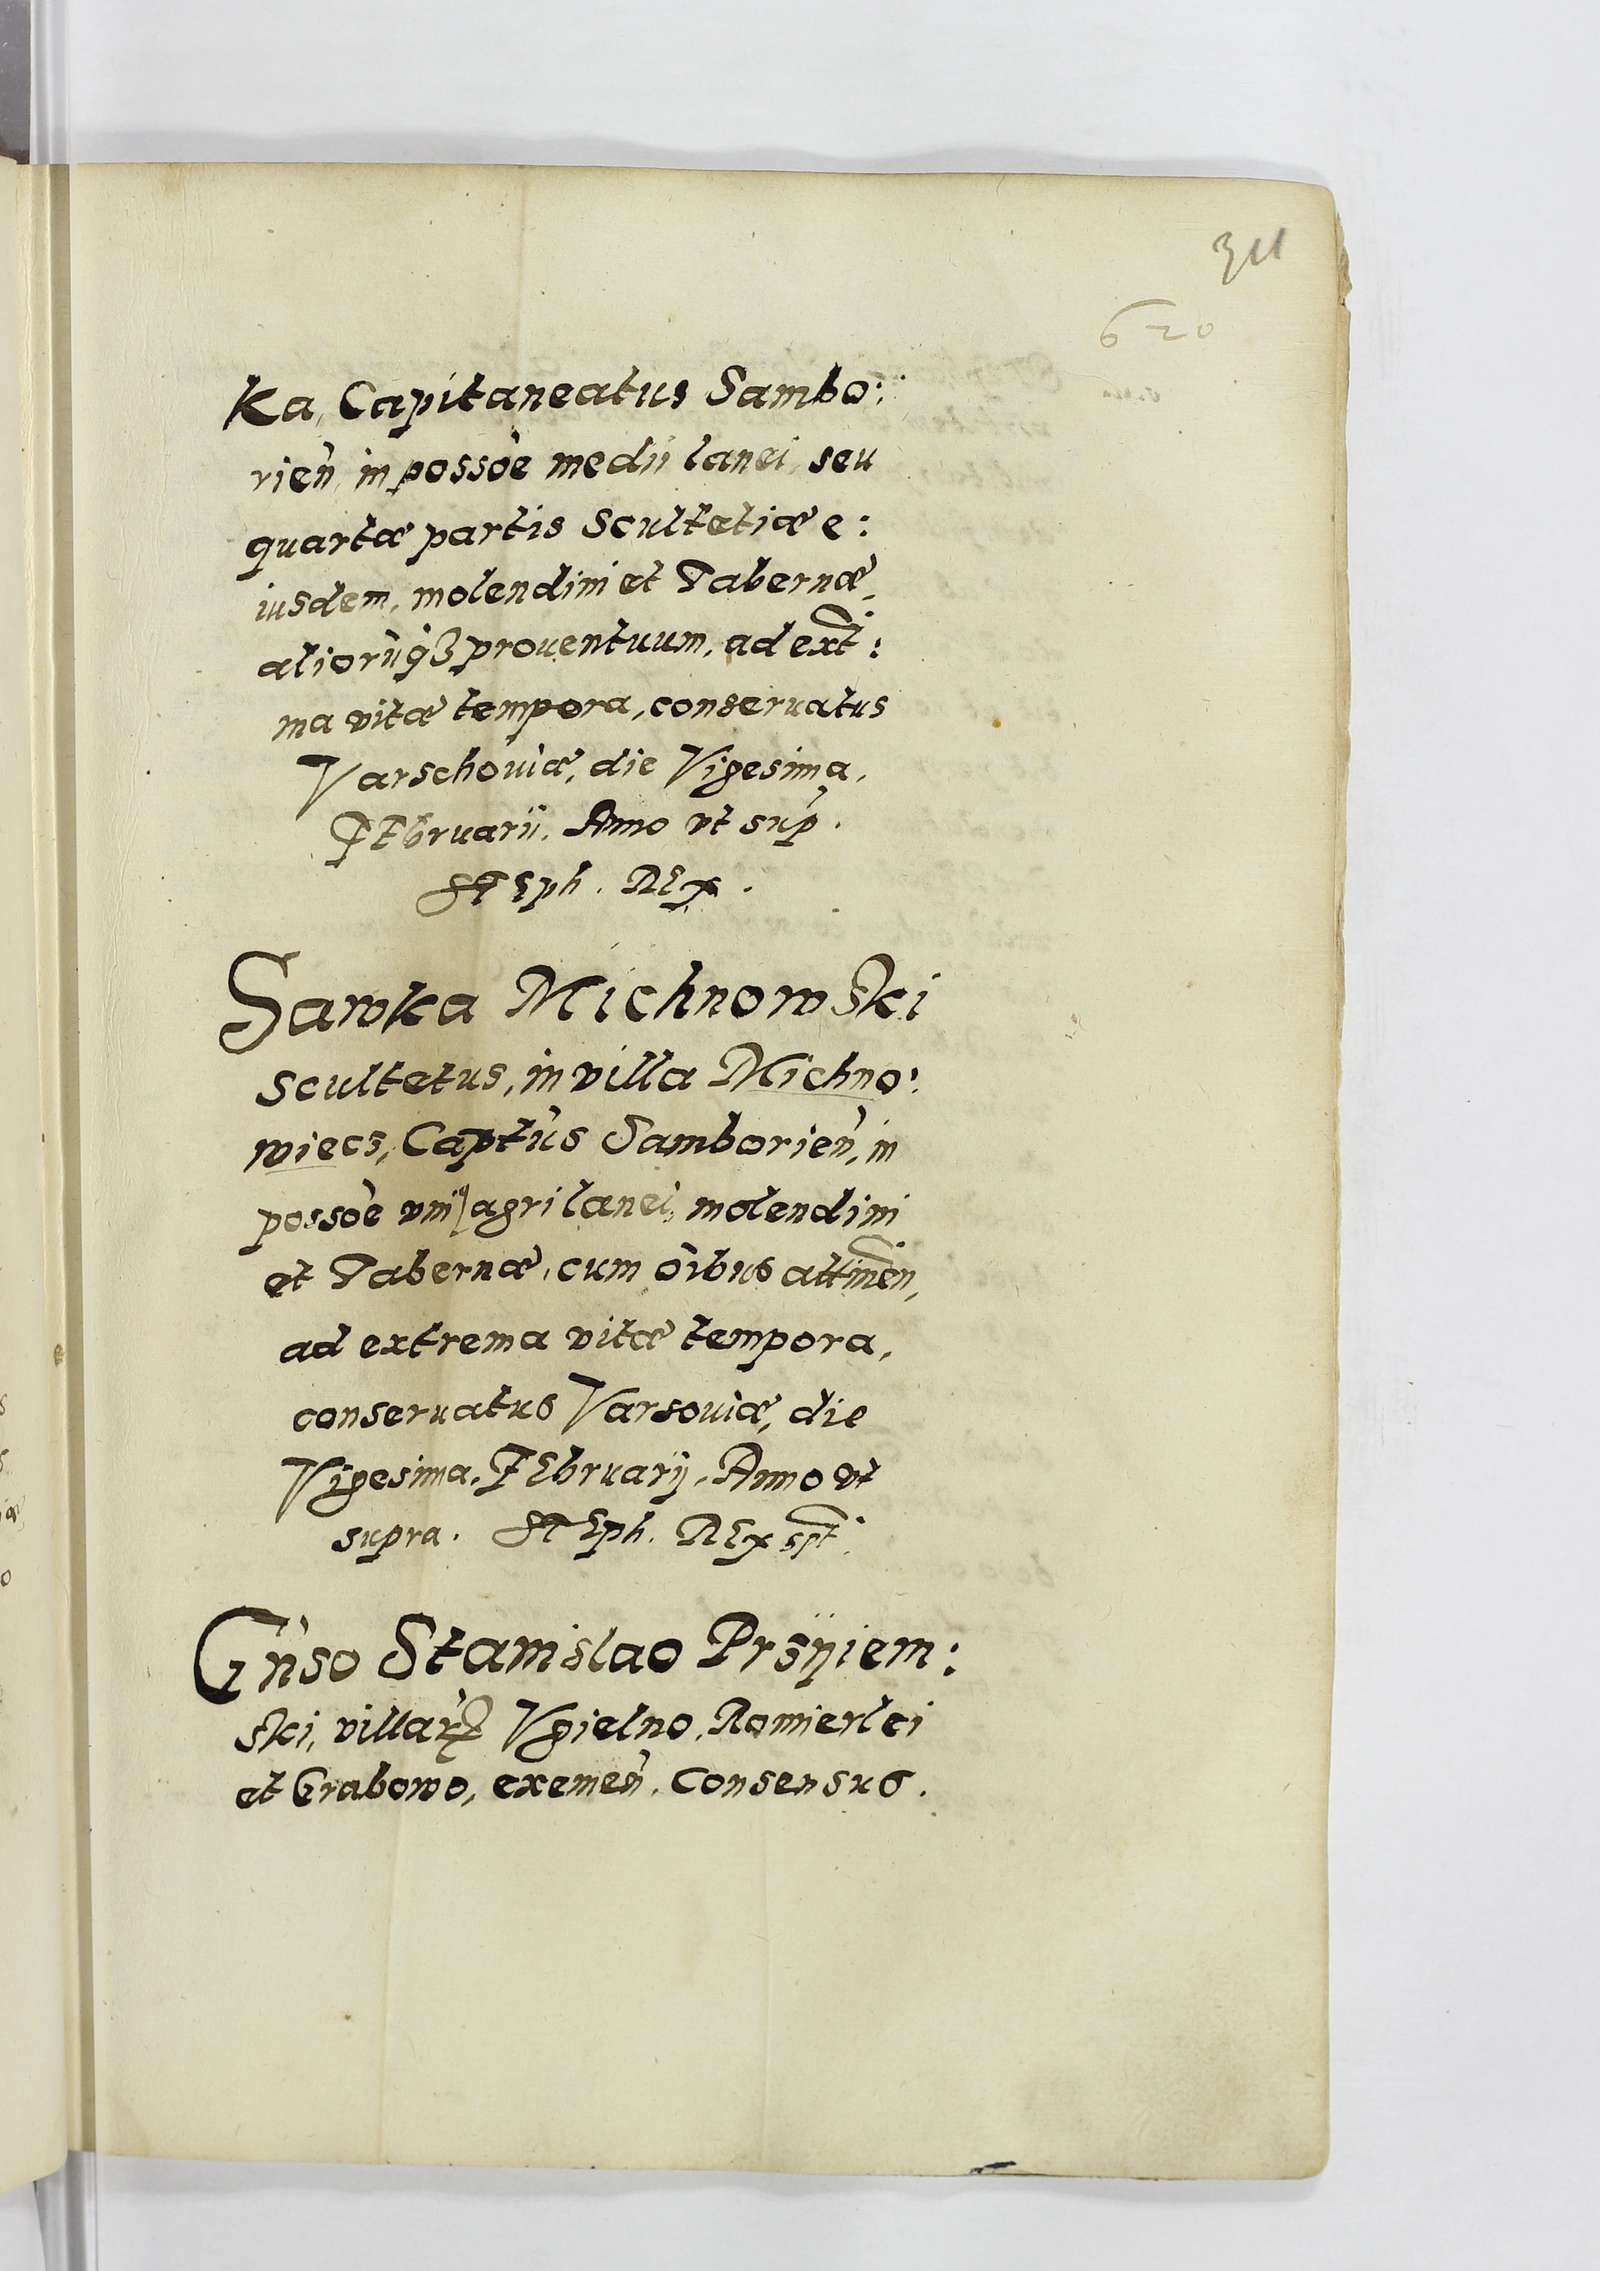 311
620
Ka, Capitaneatus Sambo:
rien̄, in possōe medii lanei, seu
quartæ partis Scultetiæ e:
iusdem, molendini et Tabernæ,
aliorūq3 prouentuum, ad ext̄:
ma vitæ tempora, conseruatus
Varschouiæ, die Vigesima,
FEbruarii, Anno vt sup̄.
STEph. REx.
Sawka Michnowski
Scultetus, in villa Michno:
wiecz, Capt̄us Samborien̄, in
possōe vni⁹ agri lanei, molendini
et Tabernæ, cum ōibus attinen̄,
ad extrema vitæ tempora,
conseruatus Varsouiæ, die
Vigesima, FEbruarij, Anno vt
supra. STEph. REx spt̄.
Gn̄so Stanislao Prsyiem:
ski, villarꝝ Vgielno, Romierlei
et Grabowo, exemen̄, Consensus.